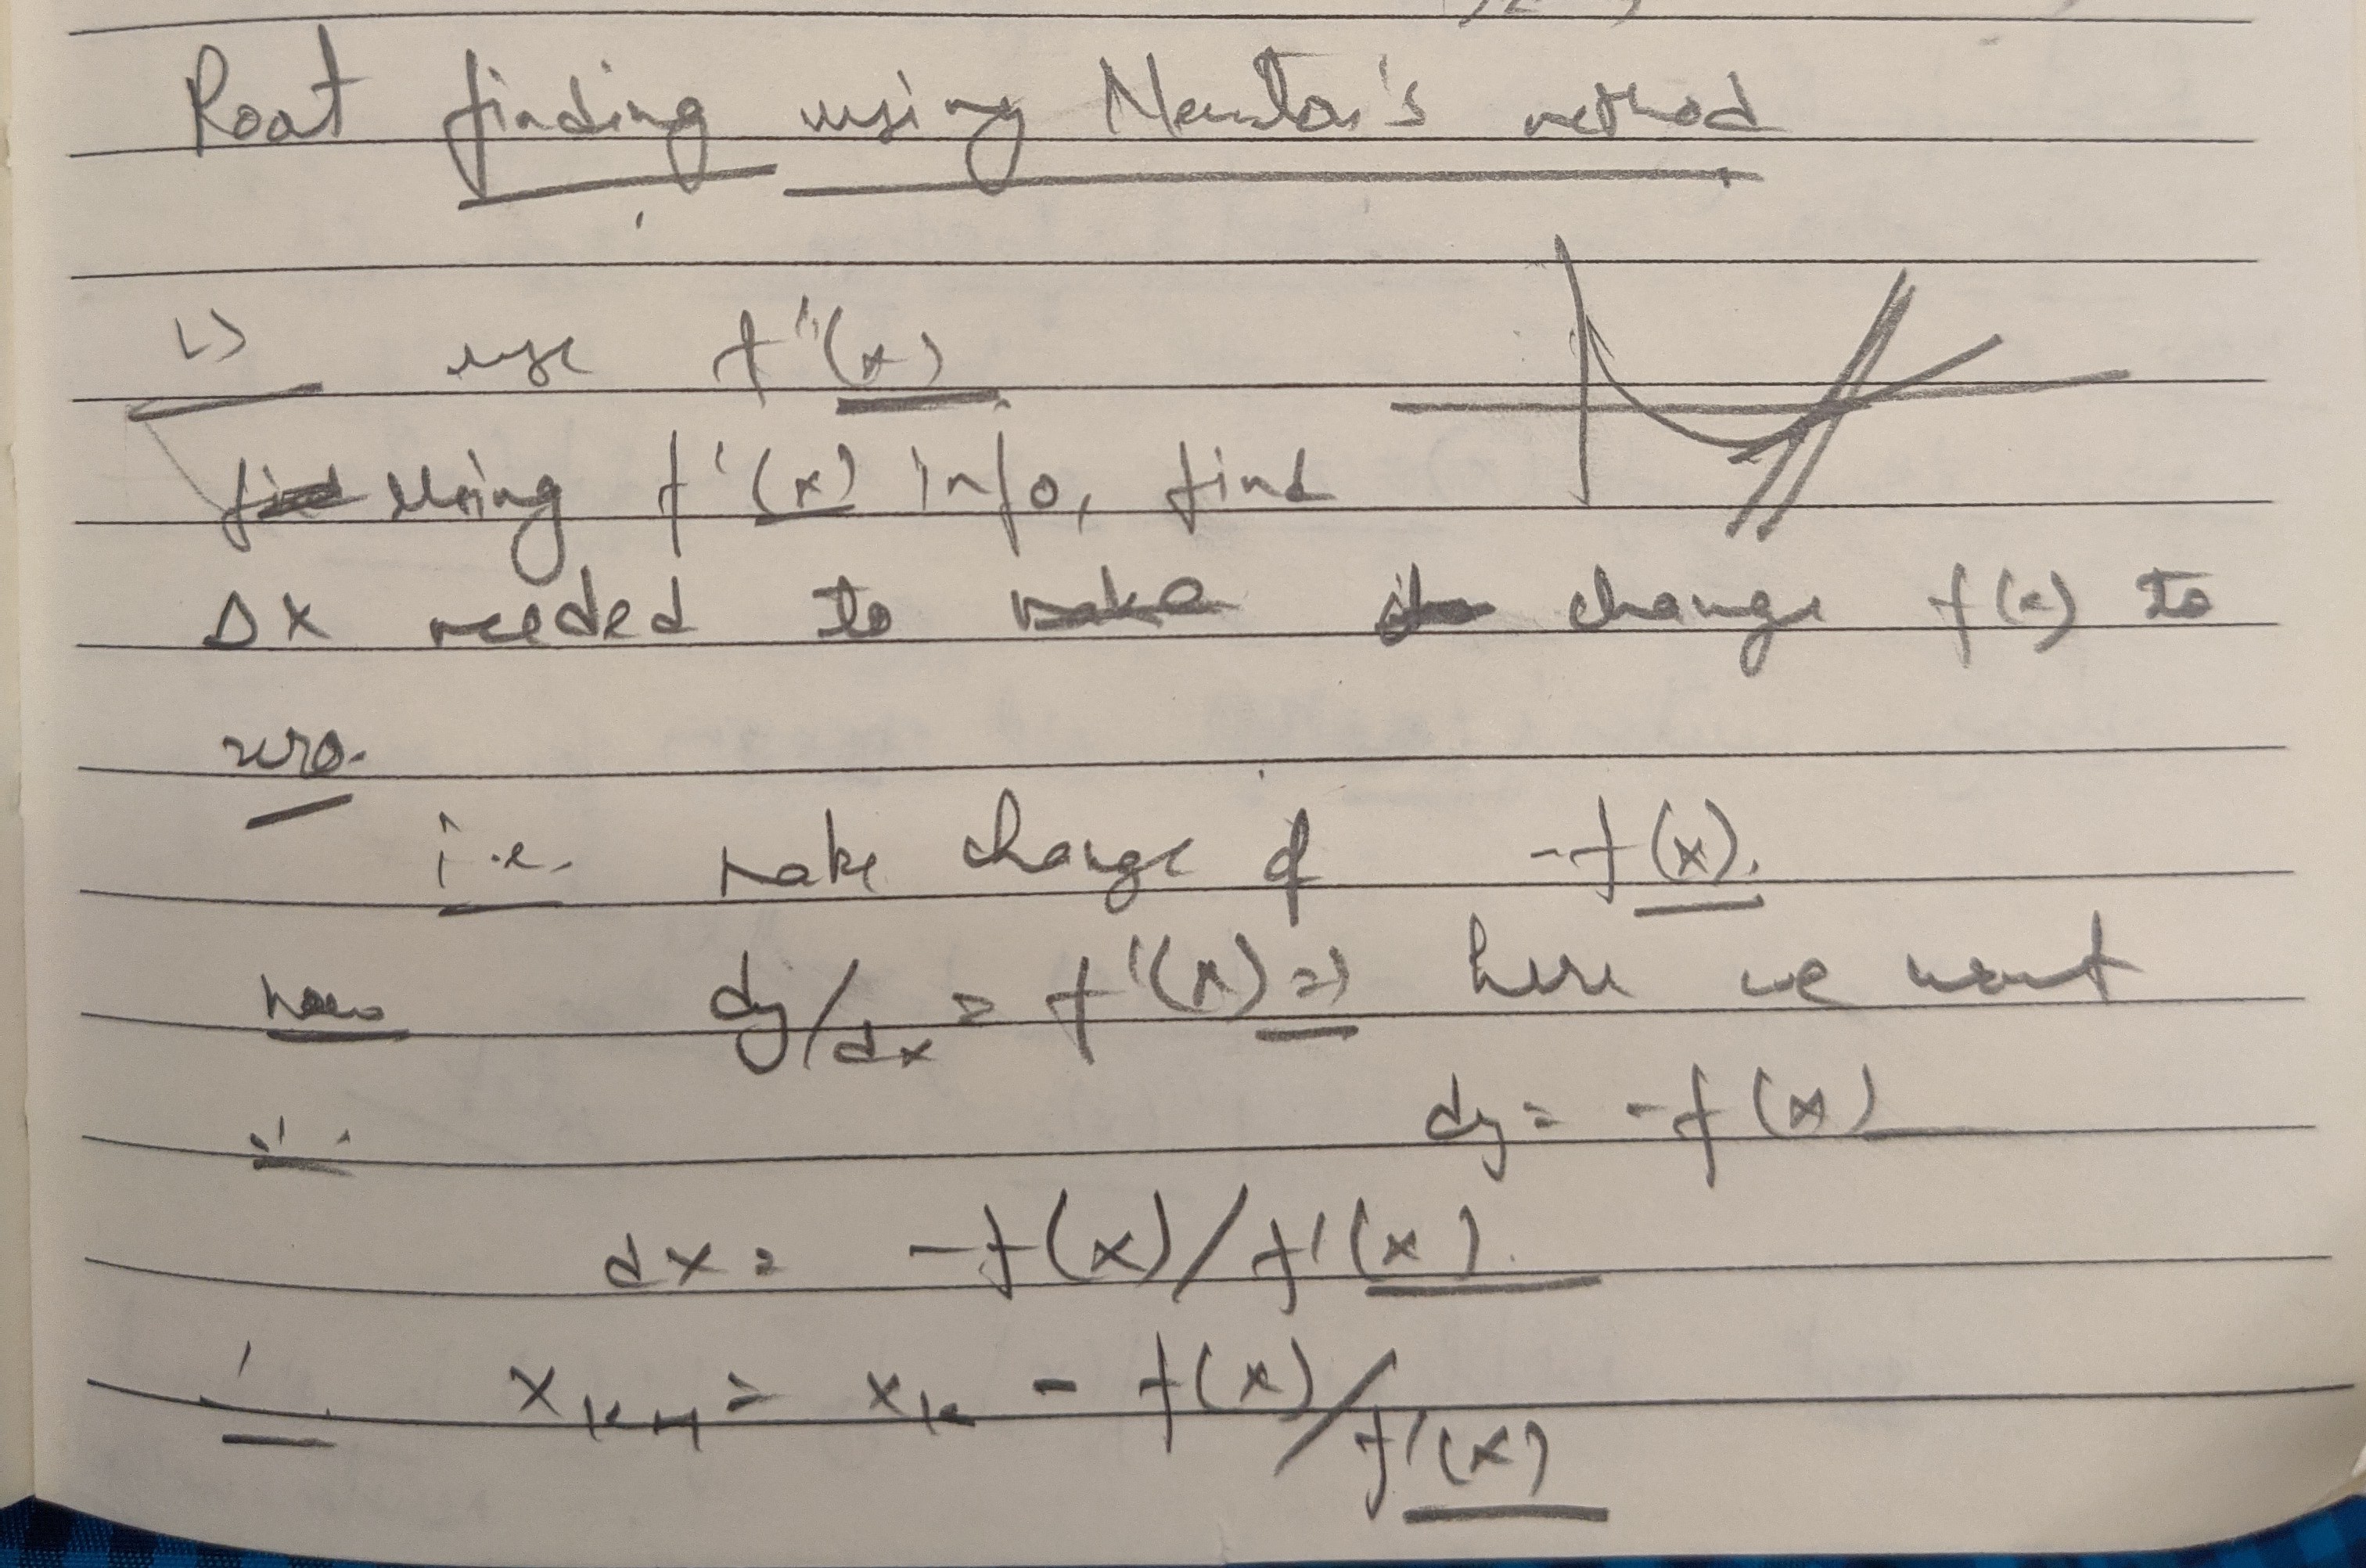 Root finding using Newton's method
L> use f''(x)
find Using f'(x) info, find
Δx needed to make do change f(x) to
zero.
i.e. make change of -f(x).
now dy/dx = f'(x) => here we want
∴ dy = -f(x)
dx = -f(x)/f'(x).
∴ x_{k+1} = x_k - f(x)/f'(x)